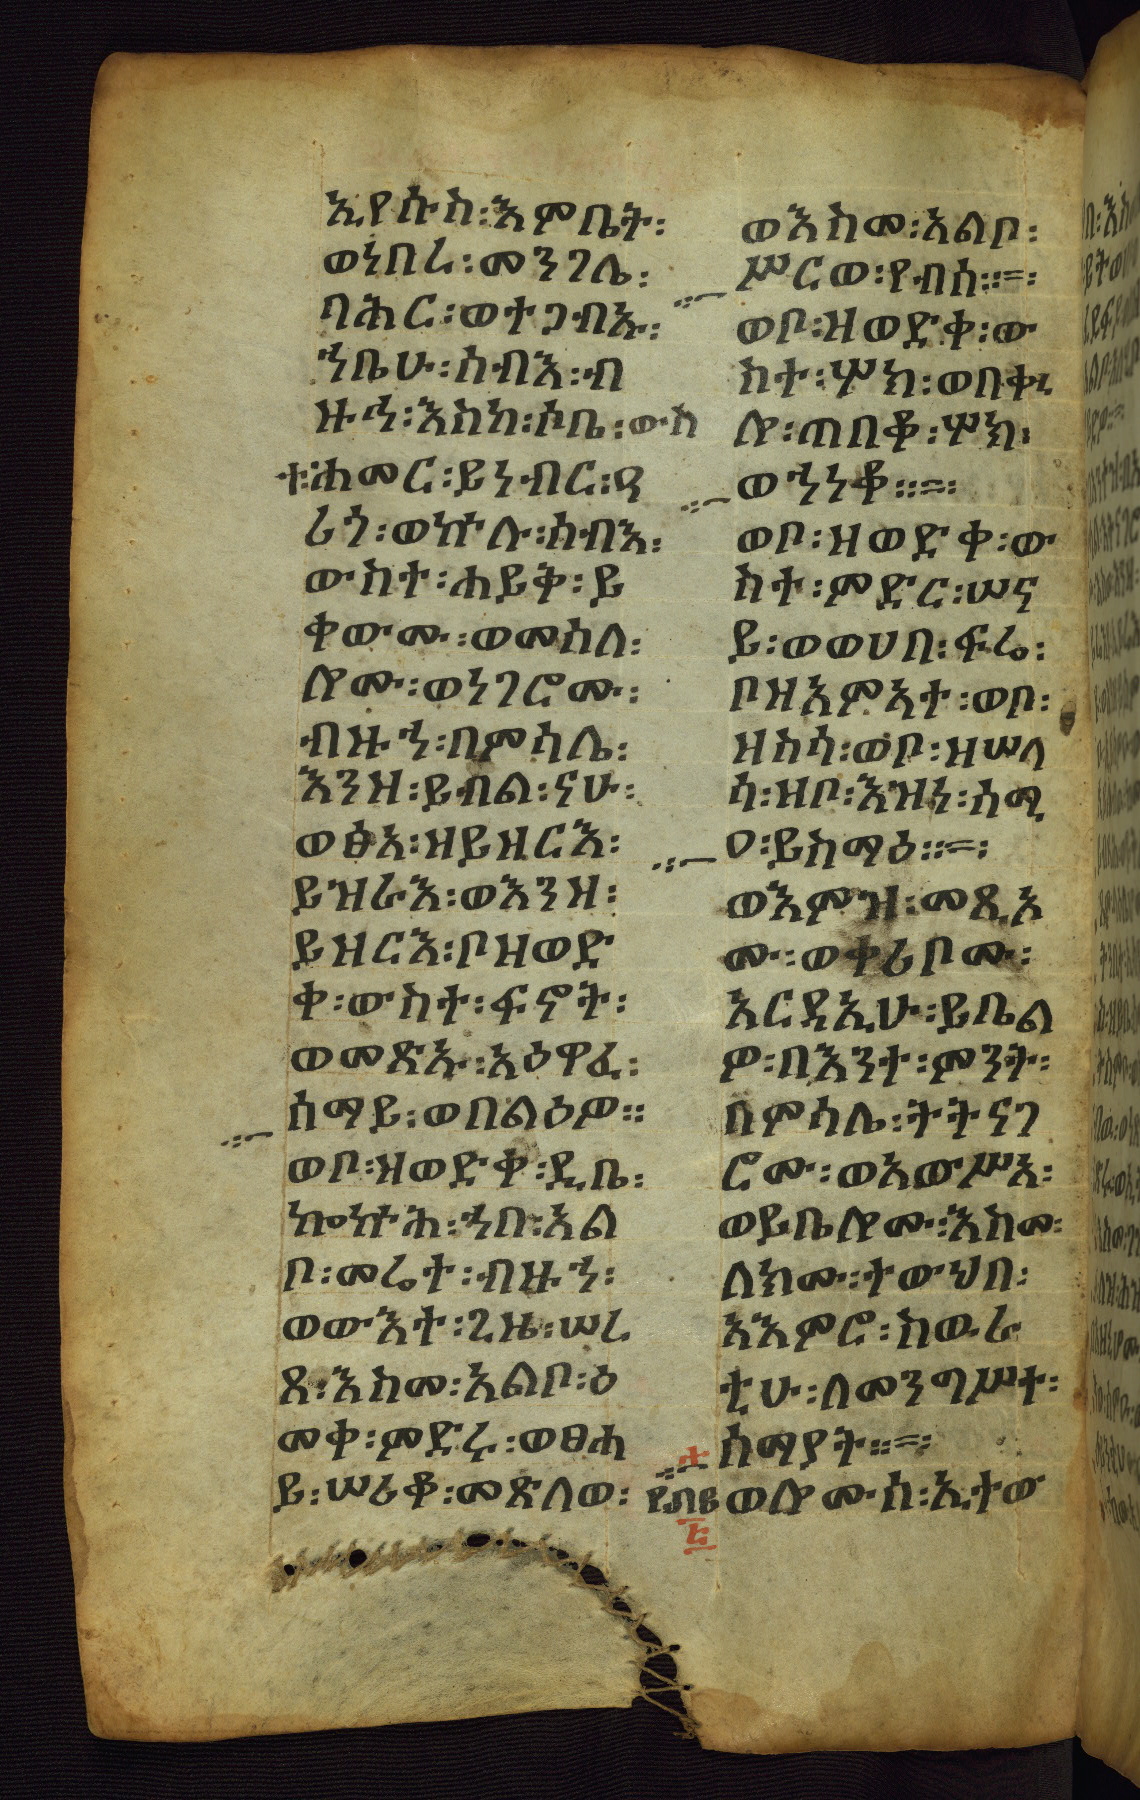 ኢየሱስ፡እምቤት፡
ወነበረ፡መንገለ፡
ባሕር፡ወተጋብኡ፡
ኀቤሁ፡ሰብእ፡ብ
ዙኅ፡እስከ፡ሶቤ፡ውስ
ተ፡ሐመር፡ይነብር፡ዓ
ሪጎ፡ወኵሉ፡ሰብእ፡
ውስተ፡ሐይቅ፡ይ
ቀውሙ፡ወመሰለ፡
ሎሙ፡ወነገሮሙ፡
ብዙኀ፡በምሳሌ፡
እንዘ፡ይብል፡ናሁ፡
ወፅአ፡ዘይዘርእ፡
ይዝራእ፡ወእንዘ፡
ይዘርእ፡ቦዘወድ
ቀ፡ውስተ፡ፍኖት፡
ወመጽኡ፡አዕዋፈ፡
ሰማይ፡ወበልዕዎ።
ወቦ፡ዘወድቀ፡ዲበ፡
ኰኵሕ፡ኀበ፡አል
ቦ፡መሬተ፡ብዙኀ፡
ወውእተ፡ጊዜ፡ሠረ
ጸ፡እስመ፡አልቦ፡ዕ
መቀ፡ምድሩ፡ወፀሐ
ይ፡ሠሪቆ፡መጽለወ፡
ወእስመ፡አልቦ፡
ሥርወ፡የብሰ።=፡
ወቦ፡ዘወድቀ፡ው
ስተ፡ሦክ፡ወበቍ
ሎ፡ጠበቆ፡ሦክ፡
ወኀነቆ።=፡
ወቦ፡ዘወድቀ፡ው
ስተ፡ምድር፡ሠና
ይ፡ወወሀበ፡ፍሬ፡
ቦዘእምኣተ፡ወቦ፡
ዘስሳ፡ወቦ፡ዘሠላ
ሳ፡ዘቦ፡እዝነ፡ሰሚ
ዐ፡ይስማዕ።=፡
ወእምዝ፡መጺኦ
ሙ፡ወቀሪቦሙ፡
አርዳኢሁ፡ይቤል
ዎ፡በእንተ፡ምንት፡
በምሳሌ፡ትትናገ
ሮሙ፡ወአውሥአ፡
ወይቤሎሙ፡እስመ፡
ለክሙ፡ተውህበ፡
አእምሮ፡ኅቡራ
ቲሁ፡ለመንግሥተ፡
ሰማያት።=፡
ወሎሙሰ፡ኢተው